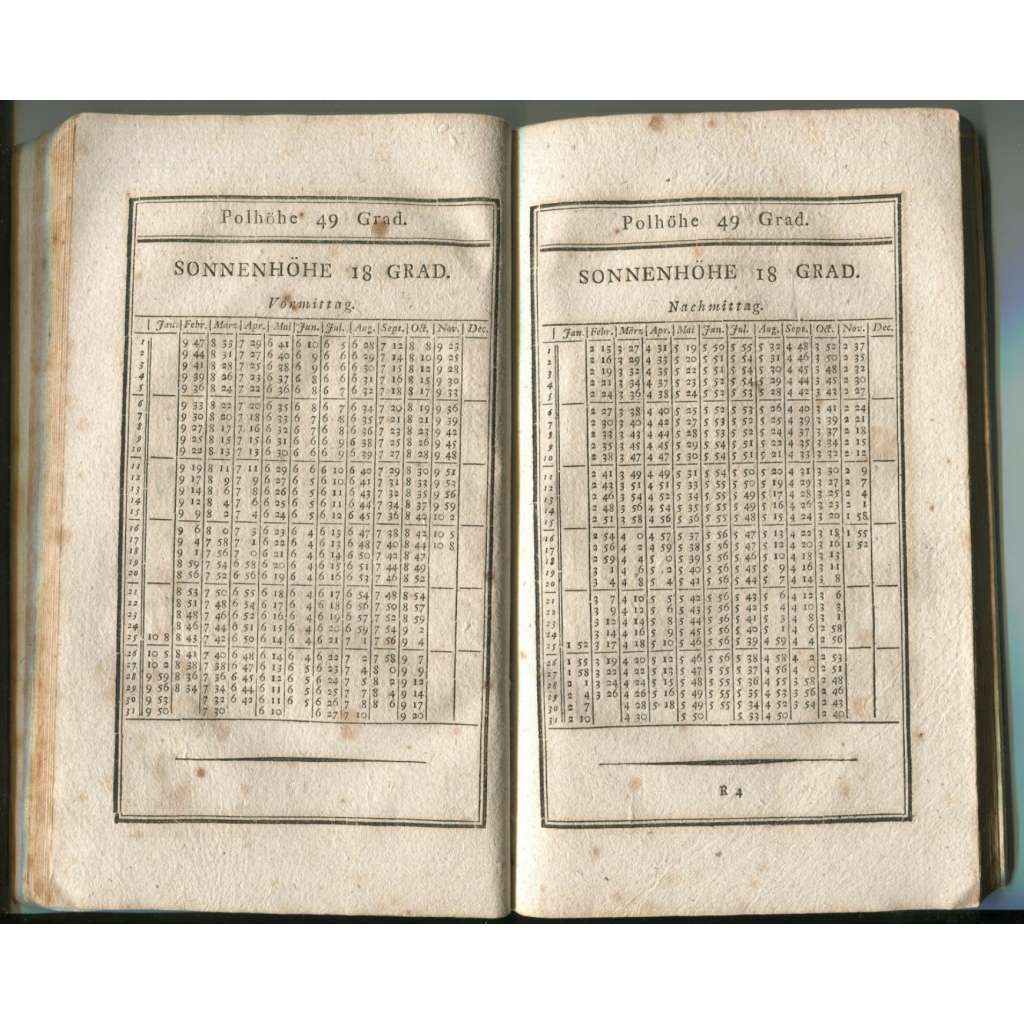 Polhöhe 49 Grad.
SONNENHÖHE 18 GRAD.
Vormittag.
Jan. Febr. März Apr. Mai Jun. Jul. Aug. Sept. Oct. Nov. Dec.
1 9 47 8 33 7 29 6 41 6 10 6 5 6 28 7 12 8 8 9 23
2 9 44 8 31 7 27 6 40 6 9 6 6 6 29 7 14 8 10 9 25
3 9 41 8 28 7 25 6 38 6 9 6 6 6 30 7 15 8 12 9 28
4 9 39 8 26 7 23 6 37 6 8 6 6 6 31 7 16 8 15 9 30
5 9 36 8 24 7 22 6 36 6 8 6 7 6 32 7 18 8 17 9 33
6 9 33 8 22 7 20 6 35 6 8 6 7 6 34 7 20 8 19 9 36
7 9 30 8 20 7 18 6 33 6 7 6 8 6 35 7 21 8 21 9 39
8 9 27 8 17 7 16 6 32 6 7 6 8 6 36 7 23 8 23 9 42
9 9 25 8 15 7 15 6 31 6 6 6 9 6 38 7 25 8 26 9 45
10 9 22 8 13 7 13 6 30 6 6 6 9 6 39 7 27 8 28 9 48
11 9 19 8 11 7 11 6 29 6 6 6 10 6 40 7 29 8 30 9 51
12 9 17 8 9 7 9 6 27 6 5 6 10 6 41 7 30 8 32 9 53
13 9 14 8 6 7 8 6 26 6 5 6 11 6 43 7 32 8 35 9 56
14 9 12 8 4 7 6 6 25 6 5 6 11 6 44 7 34 8 37 9 59
15 9 9 8 2 7 4 6 24 6 5 6 12 6 45 7 36 8 40 10 2
16 9 6 8 0 7 3 6 23 6 4 6 13 6 47 7 38 8 42 10 5
17 9 4 7 58 7 1 6 22 6 4 6 13 6 48 7 40 8 44 10 8
18 9 1 7 56 7 0 6 21 6 4 6 14 6 50 7 42 8 47
19 8 59 7 54 6 58 6 20 6 4 6 15 6 51 7 44 8 49
20 8 56 7 52 6 56 6 19 6 4 6 16 6 53 7 46 8 52
21 8 53 7 50 6 55 6 18 6 4 6 17 6 54 7 48 8 54
22 8 51 7 48 6 54 6 17 6 4 6 18 6 56 7 50 8 57
23 8 48 7 46 6 52 6 16 6 4 6 19 6 57 7 52 8 59
24 8 46 7 44 6 51 6 15 6 4 6 20 6 59 7 54 9 2
25 10 8 8 43 7 42 6 50 6 14 6 4 6 21 7 1 7 56 9 4
26 10 5 8 41 7 40 6 48 6 14 6 4 6 22 7 2 7 58 9 7
27 10 2 8 38 7 38 6 47 9 9
28 9 59 8 36 7 36 6 45 9 12
29 9 56 8 34 7 34 6 44 6 11 9 14
30 9 53 7 32 6 42 6 11 6 5 9 17
31 9 50 7 30 6 10 6 27 7 10 9 20
Polhöhe 49 Grad.
SONNENHÖHE 18 GRAD.
Nachmittag.
Jan. Febr. März Apr. Mai Jun. Jul. Aug. Sept. Oct. Nov. Dec.
1 2 13 3 27 4 31 5 19 5 50 5 55 5 32 4 48 3 52 2 37
2 2 16 3 29 4 33 5 20 5 51 5 54 5 31 4 46 3 50 2 35
3 2 19 3 32 4 35 5 22 5 51 5 54 5 30 4 45 3 48 2 32
4 2 21 3 34 4 37 5 23 5 52 5 54 5 29 4 44 3 45 2 30
5 2 24 3 36 4 38 5 24 5 52 5 53 5 28 4 42 3 43 2 27
6 2 27 3 38 4 40 5 25 5 52 5 53 5 26 4 40 3 41 2 24
7 2 30 3 40 4 42 5 27 5 53 5 52 5 25 4 39 3 39 2 21
8 2 33 3 43 4 44 5 28 5 53 5 52 5 24 4 37 3 37 2 18
9 2 35 3 45 4 45 5 29 5 54 5 51 5 22 4 35 3 34 2 15
10 2 38 3 47 4 47 5 30 5 54 5 51 5 21 4 33 3 32 2 12
11 2 41 3 49 4 49 5 31 5 54 5 50 5 20 4 31 3 30 2 9
12 2 43 3 51 4 51 5 33 5 55 5 50 5 19 4 30 3 28 2 7
13 2 46 3 54 4 52 5 34 5 55 5 49 5 17 4 28 3 25 2 4
14 2 48 3 56 4 54 5 35 5 55 5 49 5 16 4 26 3 23 2 1
15 2 51 3 58 4 56 5 36 5 55 5 48 5 15 4 24 3 20 1 58
16 2 54 4 0 4 57 5 37 5 56 5 47 5 13 4 22 3 18 1 55
17 2 56 4 2 4 59 5 38 5 56 5 47 5 12 4 20 3 16 1 52
18 2 59 4 4 5 0 5 39 5 56 5 46 5 10 4 18 3 13
19 3 1 4 6 5 2 5 40 5 56 5 45 5 9 4 16 3 11
20 3 4 4 8 5 4 5 41 5 56 5 44 5 7 4 14 3 8
21 3 7 4 10 5 5 5 42 5 56 5 43 5 6 4 12 3 6
22 3 9 4 12 5 6 5 43 5 56 5 42 5 4 4 10 3 3
23 3 12 4 14 5 8 5 44 5 56 5 41 5 3 4 8 3 1
24 3 14 4 16 5 9 5 45 5 56 5 40 5 1 4 6 2 58
25 1 52 3 17 4 18 5 10 5 46 5 56 5 39 4 59 4 4 2 56
26 1 55 3 19 4 20 5 12 5 46 5 56 5 38 4 58 4 2 2 53
27 1 58 3 22 4 22 5 13 5 47 5 55 2 51
28 2 1 3 24 4 24 5 15 5 48 5 55 2 48
29 2 4 3 26 4 26 5 16 5 49 5 55 2 46
30 2 7 4 28 5 18 5 49 5 55 5 34 4 52 3 54 2 43
31 2 10 4 30 5 50 5 33 4 50 2 40
R 4